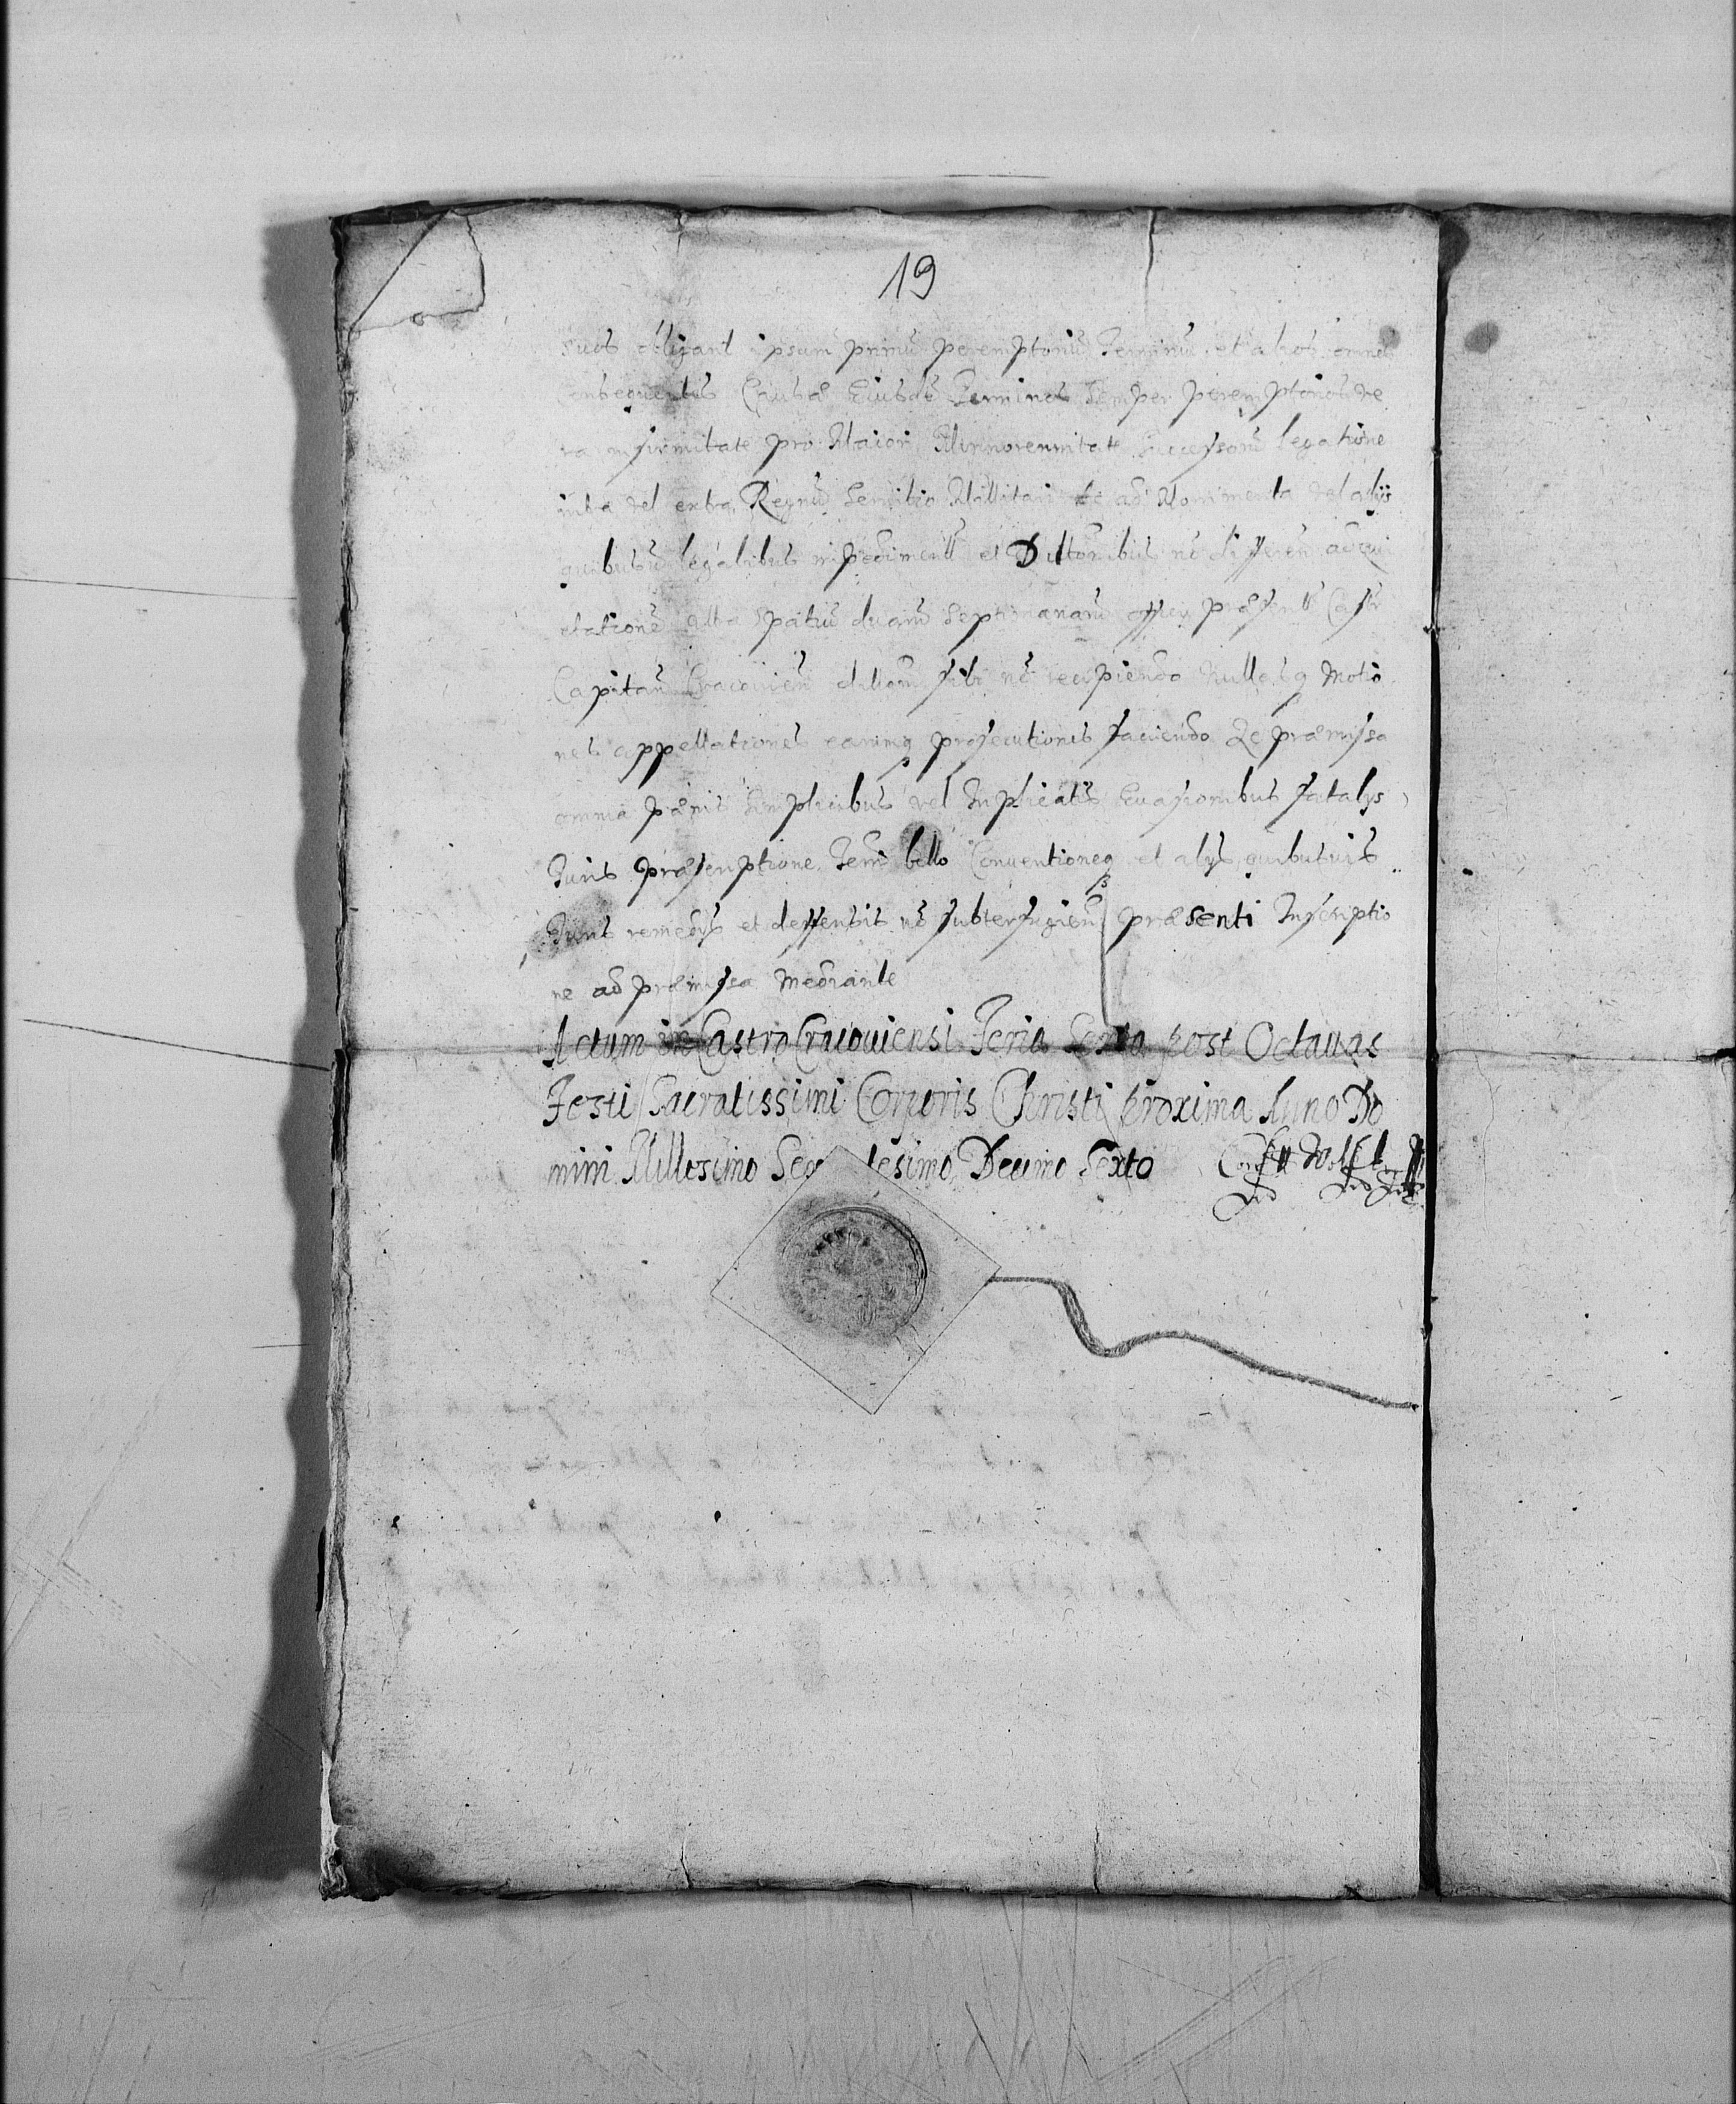 19
suos obligant ipsum primū peremptoriū Terminū et alios omnes
consequentes Causæ Eiusdē Terminos semper peremptorios ve
ra infirmitate pro Maiori Minnorennitate Successorū legatione
intra vel extra Regnū Servitio Millitari ad Monimenta vel alijs
quibusvis legalibus impedimentis et nō
ultra spatiū duarū septimanarū Castr
Capitan Cracovien sibi nō recipiendo Nullasq Motio
nes appellationes earumq prosecutiones faciendo Ze præmissa
omnia pænis simplicibus vel Triplicatis Evasionibus fatalijs
Juris Præscriptione Terrē bello Conventioneq et alijs quibusvis
Juris remedijs et deffensis nō subterfugien præsenti Inscriptio
ne ad præmissa Mediante
Actum in Castro Cracouiensi Feria Sexta post Octauas
Festi Sacratissimi Corporis Christi Proxima Anno Do
mini Millesimo Sex tesimo Decimo Sexto